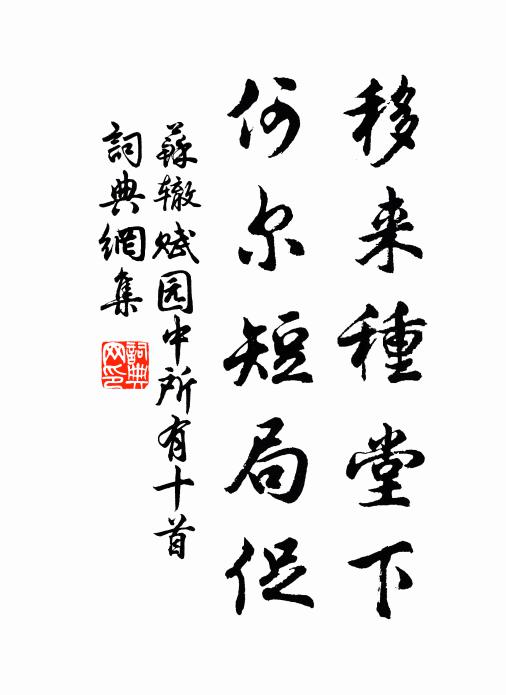 移来種堂下
何尔短局促
蘇辙赋园中所有十首
詞典網集
詞典网印